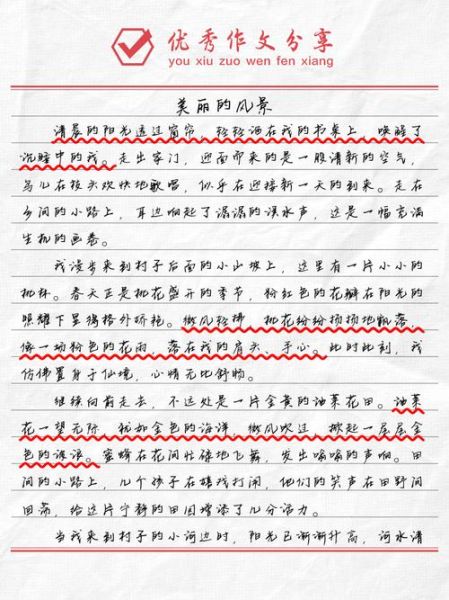 优秀作文分享
you xiu zuo wen fen xiang
美丽的风景
清晨的阳光透过窗帘，轻轻洒在我的书桌上，唤醒了
沉睡中的我。走出家门，迎面而来的是一股清新的空气，
鸟儿在枝头欢快地歌唱，似乎在迎接新一天的到来。走在
乡间的小路上，耳边响起了潺潺的溪水声，这是一幅充满
生机的画卷。
我漫步来到村子后面的小山坡上，这里有一片小小的
桃林。春天正是桃花盛开的季节，粉红色的花瓣在阳光的
照耀下显得格外娇艳。微风轻拂，桃花纷纷扬扬地飘落，
像一场粉色的花雨，落在我的肩头、手心。此时此刻，我
仿佛置身于仙境，心情无比舒畅。
继续向前走去，不远处是一片金黄的油菜花田。油菜
花一望无际，犹如金色的海洋，微风吹过，掀起一层层金
色的波浪。蜜蜂在花间忙碌地飞舞，发出嗡嗡的声响。田
间的小路上，几个孩子在嬉戏打闹，他们的笑声在田野间
回荡，给这片宁静的田园增添了几分活力。
当我来到村子的小河边时，阳光已渐渐升高，河水清